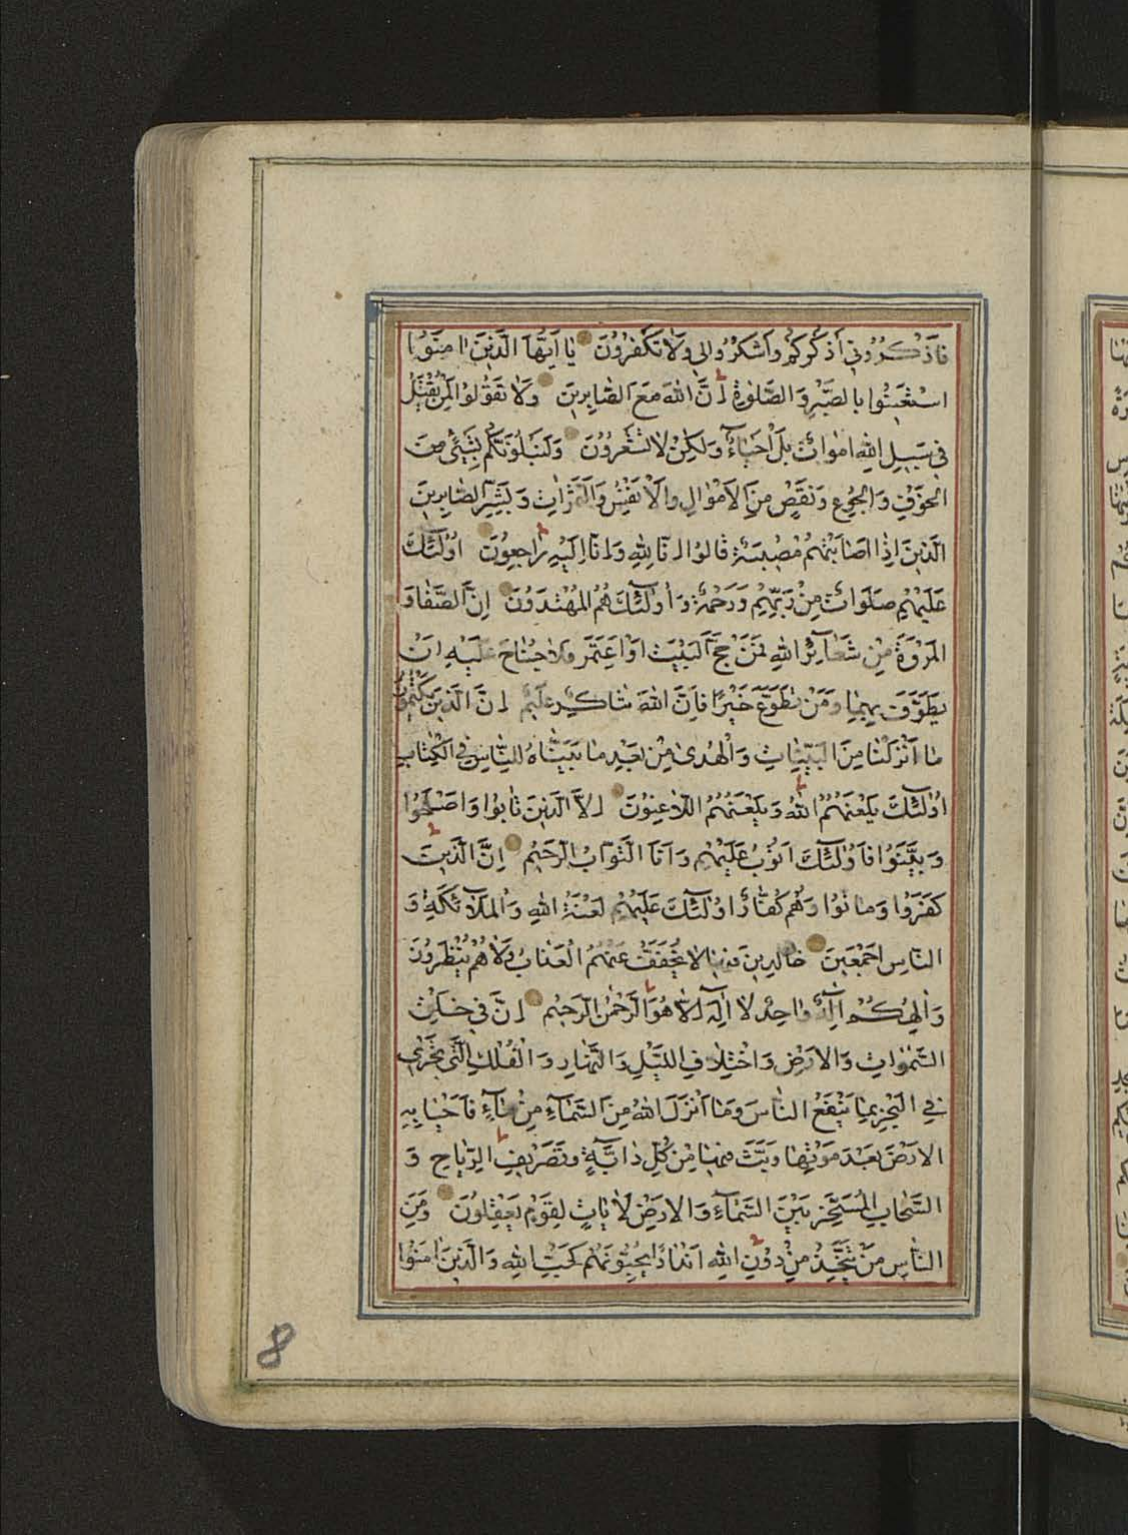 فَاذْكُرُونِي أَذْكُرْكُمْ وَاشْكُرُوا لِي وَلَا تَكْفُرُونَ يَا أَيُّهَا الَّذِينَ اٰمَنُوا
اسْتَعِينُوا بِالصَّبْرِ وَالصَّلٰوةِ إِنَّ اللّٰهَ مَعَ الصَّابِرِينَ وَلَا تَقُولُوا لِمَنْ يُقْتَلُ
فِي سَبِيلِ اللّٰهِ اَمْوَاتٌ بَلْ أَحْيَآءٌ وَلٰكِنْ لَا تَشْعُرُونَ وَلَنَبْلُوَنَّكُمْ بِشَيْءٍ مِنَ
الْخَوْفِ وَالْجُوعِ وَنَقْصٍ مِنَ الْاَمْوَالِ وَالْاَنْفُسِ وَالثَّمَرَاتِ وَبَشِّرِ الصَّابِرِينَ
الَّذِينَ اِذَا اَصَابَتْهُمْ مُصِيبَةٌ قَالُوا اِنَّا لِلّٰهِ وَاِنَّا اِلَيْهِ رَاجِعُونَ اُولٰٓئِكَ
عَلَيْهِمْ صَلَوَاتٌ مِنْ رَبِّهِمْ وَرَحْمَةٌ وَاُولٰٓئِكَ هُمُ الْمُهْتَدُونَ اِنَّ الصَّفَا وَ
الْمَرْوَةَ مِنْ شَعَآئِرِ اللّٰهِ فَمَنْ حَجَّ الْبَيْتَ اَوِ اعْتَمَرَ فَلَا جُنَاحَ عَلَيْهِ اَنْ
يَطَّوَّفَ بِهِمَا وَمَنْ تَطَوَّعَ خَيْرًا فَاِنَّ اللّٰهَ شَاكِرٌ عَلِيمٌ اِنَّ الَّذِينَ يَكْتُمُونَ
مَا اَنْزَلْنَا مِنَ الْبَيِّنَاتِ وَالْهُدٰى مِنْ بَعْدِ مَا بَيَّنَّاهُ لِلنَّاسِ فِي الْكِتَابِ
اُولٰٓئِكَ يَلْعَنُهُمُ اللّٰهُ وَيَلْعَنُهُمُ اللَّاعِنُونَ اِلَّا الَّذِينَ تَابُوا وَاَصْلَحُوا
وَبَيَّنُوا فَاُولٰٓئِكَ اَتُوبُ عَلَيْهِمْ وَاَنَا التَّوَّابُ الرَّحِيمُ اِنَّ الَّذِينَ
كَفَرُوا وَمَاتُوا وَهُمْ كُفَّارٌ اُولٰٓئِكَ عَلَيْهِمْ لَعْنَةُ اللّٰهِ وَالْمَلَآئِكَةِ وَ
النَّاسِ اَجْمَعِينَ خَالِدِينَ فِيهَا لَا يُخَفَّفُ عَنْهُمُ الْعَذَابُ وَلَا هُمْ يُنْظَرُونَ
وَاِلٰهُكُمْ اِلٰهٌ وَاحِدٌ لَا اِلٰهَ اِلَّا هُوَ الرَّحْمٰنُ الرَّحِيمُ اِنَّ فِي خَلْقِ
السَّمٰوَاتِ وَالْاَرْضِ وَاخْتِلَافِ اللَّيْلِ وَالنَّهَارِ وَالْفُلْكِ الَّتِي تَجْرِي
فِي الْبَحْرِ بِمَا يَنْفَعُ النَّاسَ وَمَا اَنْزَلَ اللّٰهُ مِنَ السَّمَآءِ مِنْ مَآءٍ فَاَحْيَا بِهِ
الْاَرْضَ بَعْدَ مَوْتِهَا وَبَثَّ فِيهَا مِنْ كُلِّ دَابَّةٍ وَتَصْرِيفِ الرِّيَاحِ وَ
السَّحَابِ الْمُسَخَّرِ بَيْنَ السَّمَآءِ وَالْاَرْضِ لَاٰيَاتٍ لِقَوْمٍ يَعْقِلُونَ وَمِنَ
النَّاسِ مَنْ يَتَّخِذُ مِنْ دُونِ اللّٰهِ اَنْدَادًا يُحِبُّونَهُمْ كَحُبِّ اللّٰهِ وَالَّذِينَ اٰمَنُوا
8